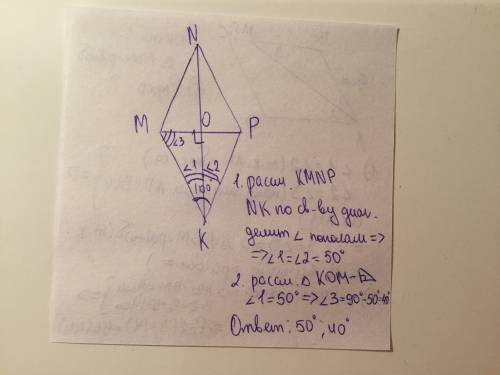 N
M
O
P
∠3
∠1
∠2
100°
K
1. рассм. KMNP
NK по св-ву диаг.
делит ∠ пополам =>
=> ∠1 = ∠2 = 50°
2. рассм. △ KOM - п/у
∠1 = 50° => ∠3 = 90° - 50° = 40°
Ответ: 50°; 40°